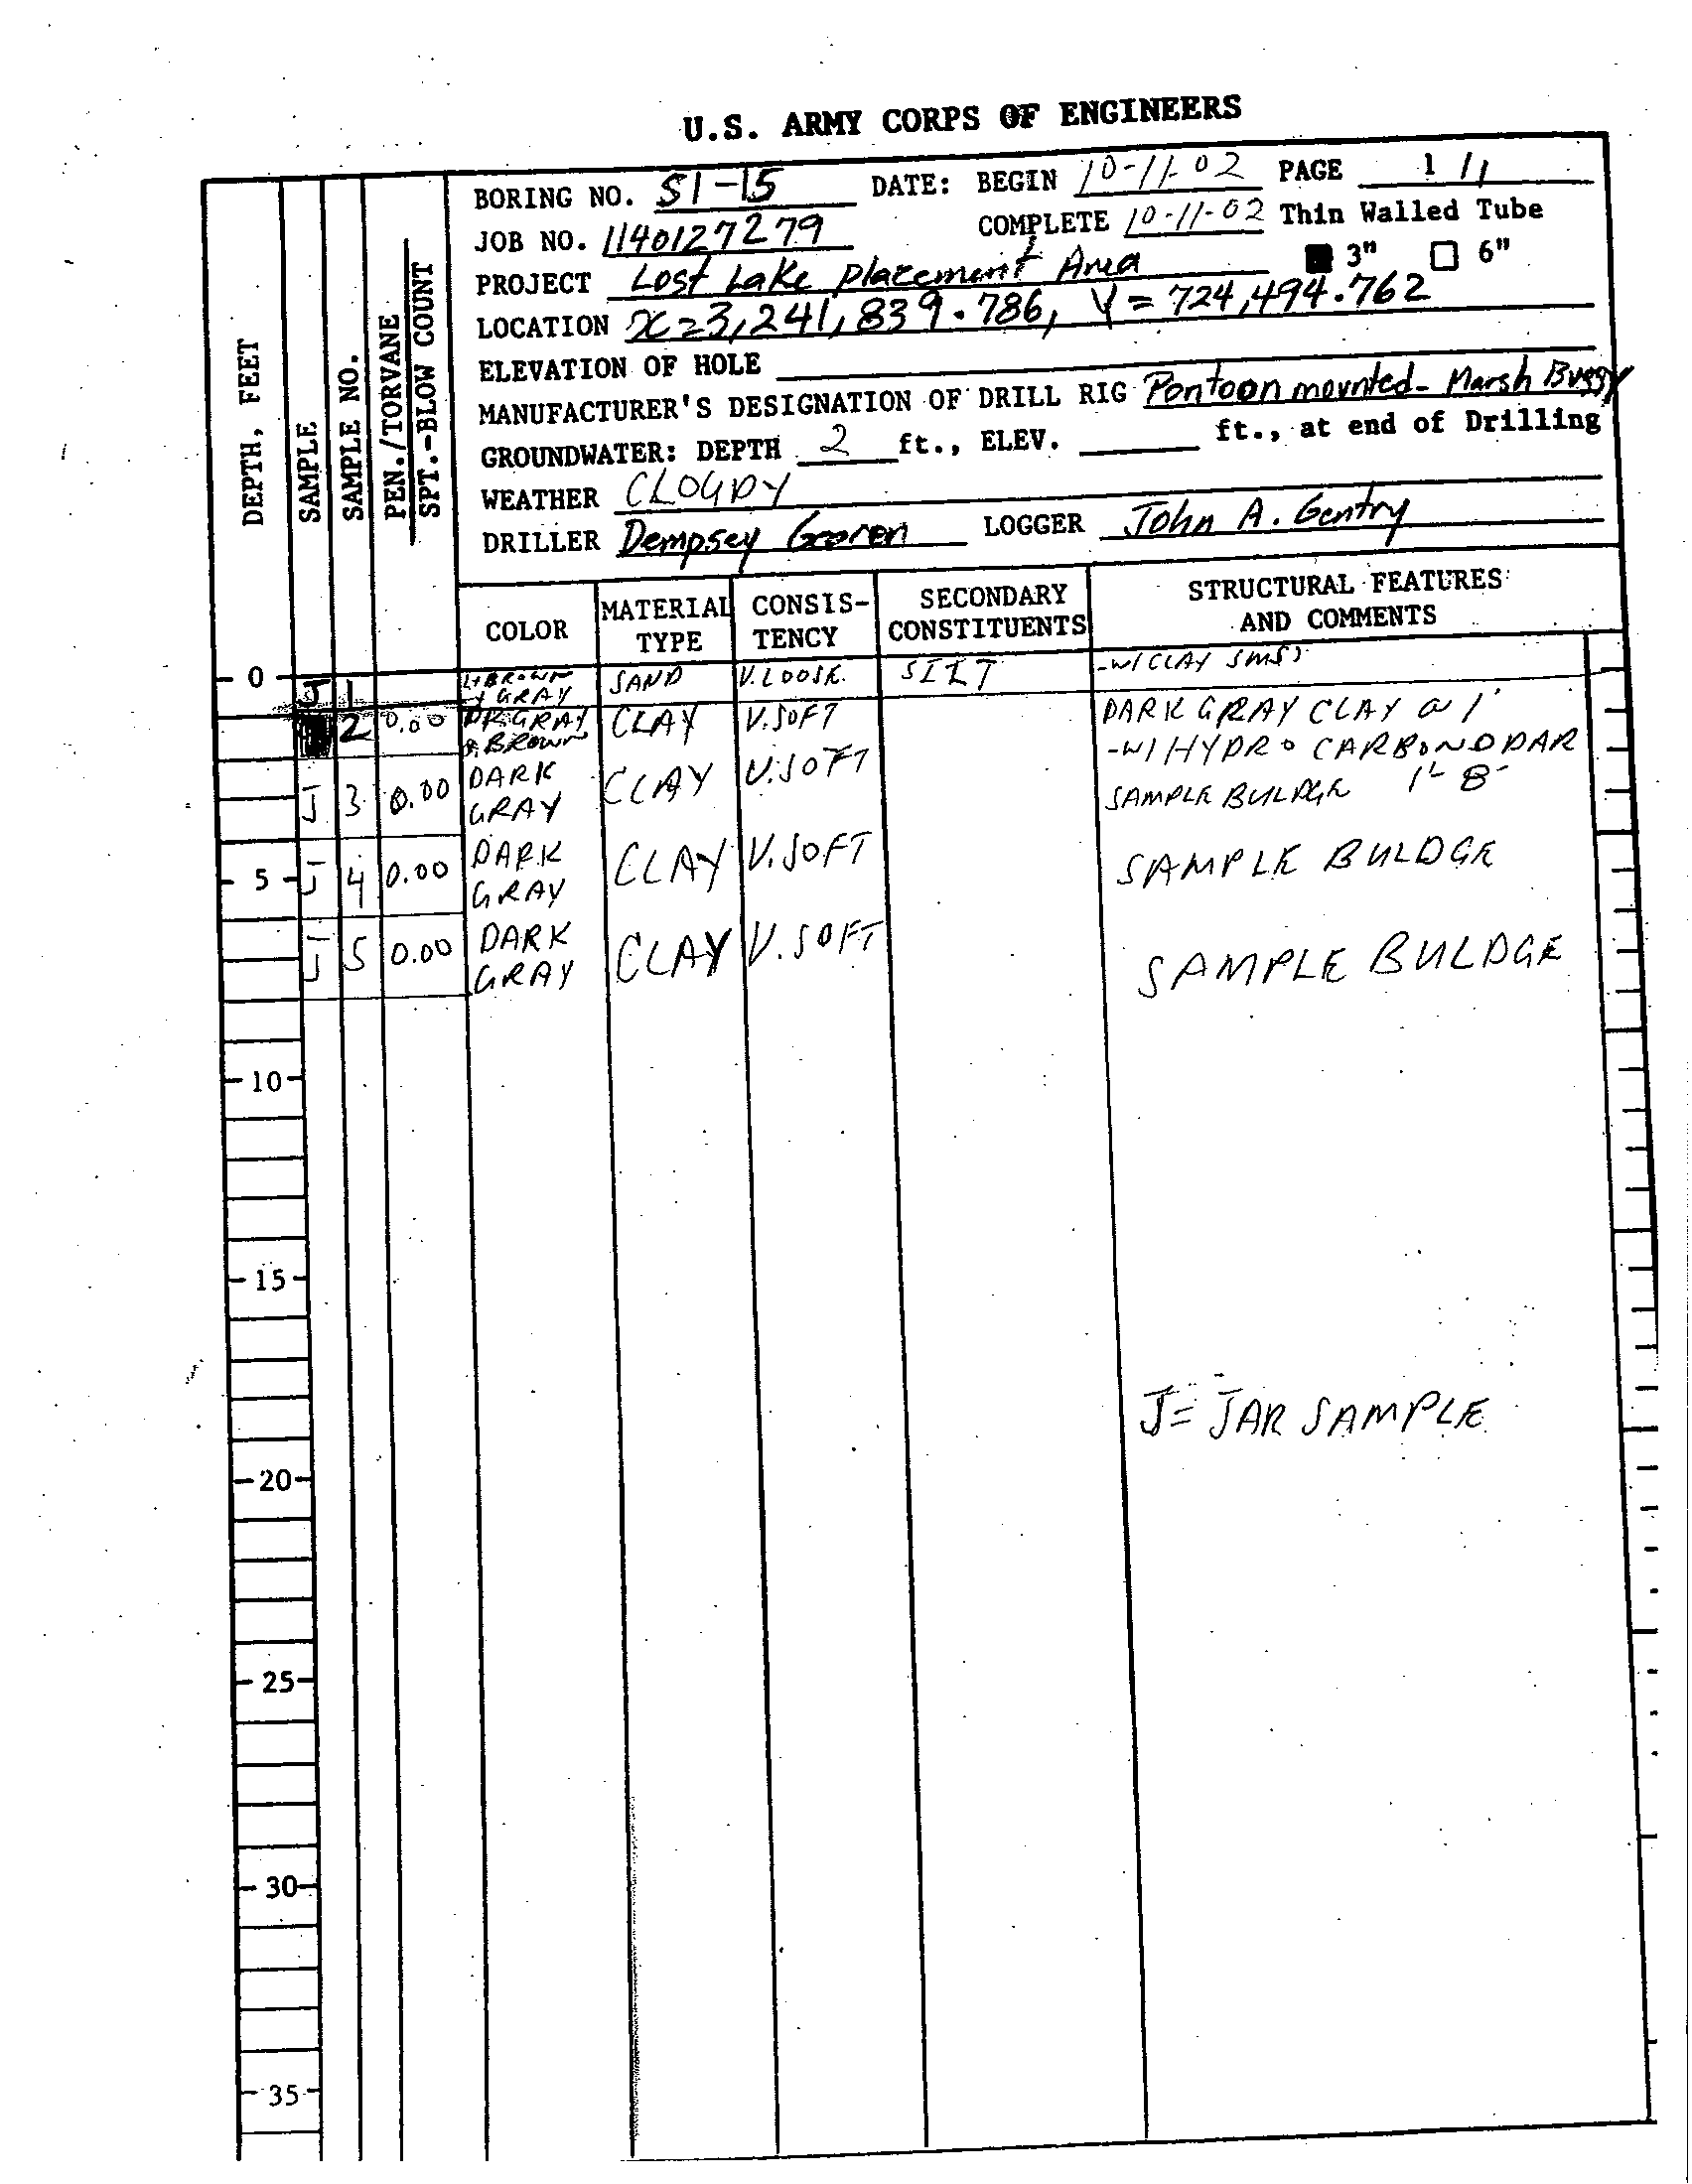 U.S. ARMY CORPS OF ENGINEERS
BORING NO. SI-15 DATE: BEGIN 10-11-02 PAGE 1/1
JOB NO. 1140127279 COMPLETE 10-11-02 Thin Walled Tube
PROJECT Lost Lake Placement Area 3" 6"
LOCATION X=3,241,839.786, Y=724,494.762
ELEVATION OF HOLE
MANUFACTURER'S DESIGNATION OF DRILL RIG Pontoon mounted- Marsh Buggy
GROUNDWATER: DEPTH 2 ft., ELEV. ft., at end of Drilling
WEATHER CLOUDY
DRILLER Dempsey LOGGER John A. Gentry
DEPTH, FEET
SAMPLE
SAMPLE NO.
PEN./TORVANE
SPT.-BLOW COUNT
COLOR MATERIAL TYPE CONSIS-TENCY SECONDARY CONSTITUENTS STRUCTURAL FEATURES AND COMMENTS
0 J 1 LT BROWN & GRAY SAND V. LOOSE SILT -W/CLAY SMS)
2 0.00 DK GRAY & BROWN CLAY V.SOFT DARK GRAY CLAY @ 1'
-W/HYDRO CARBON ODAR
J 3 0.00 DARK GRAY CLAY V.SOFT SAMPLE BULDGE 1'- 8'
5 J 4 0.00 DARK GRAY CLAY V.SOFT SAMPLE BULDGE
J 5 0.00 DARK GRAY CLAY V.SOFT SAMPLE BULDGE
10
15
J= JAR SAMPLE
20
25
30
35